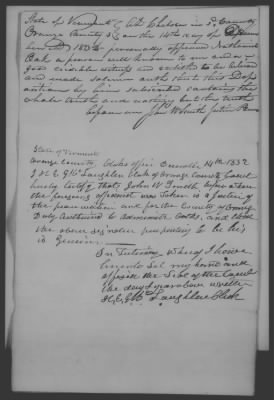 State of Vermont At Chelsea in Sd County
Orange County SS on the 14th day of
AD 1832 personally appeared Nathaniel
Oak a person well known to me as a person of
good credible veracity and entitled to be believed
and made solemn oath that this Dep
osition by him subscribed contains the
whole truth and nothing but the truth
before me Jno W Justice Peace
State of Vermont
Orange County, Clerks office 14th 1832
I H E G McLaughlin Clerk of Orange County Court
hereby certify that John W before whom
the foregoing affidavit was taken is a Justice of
the peace within and for the County of Orange
Duly Authorised to administer Oaths, and that
the above signature purporting to be his
is Genuine.
In Testimony Whereof I have
hereunto Set my hand and
affixed the Seal of the Court
the day & year above written
H E G McLaughlin Clerk